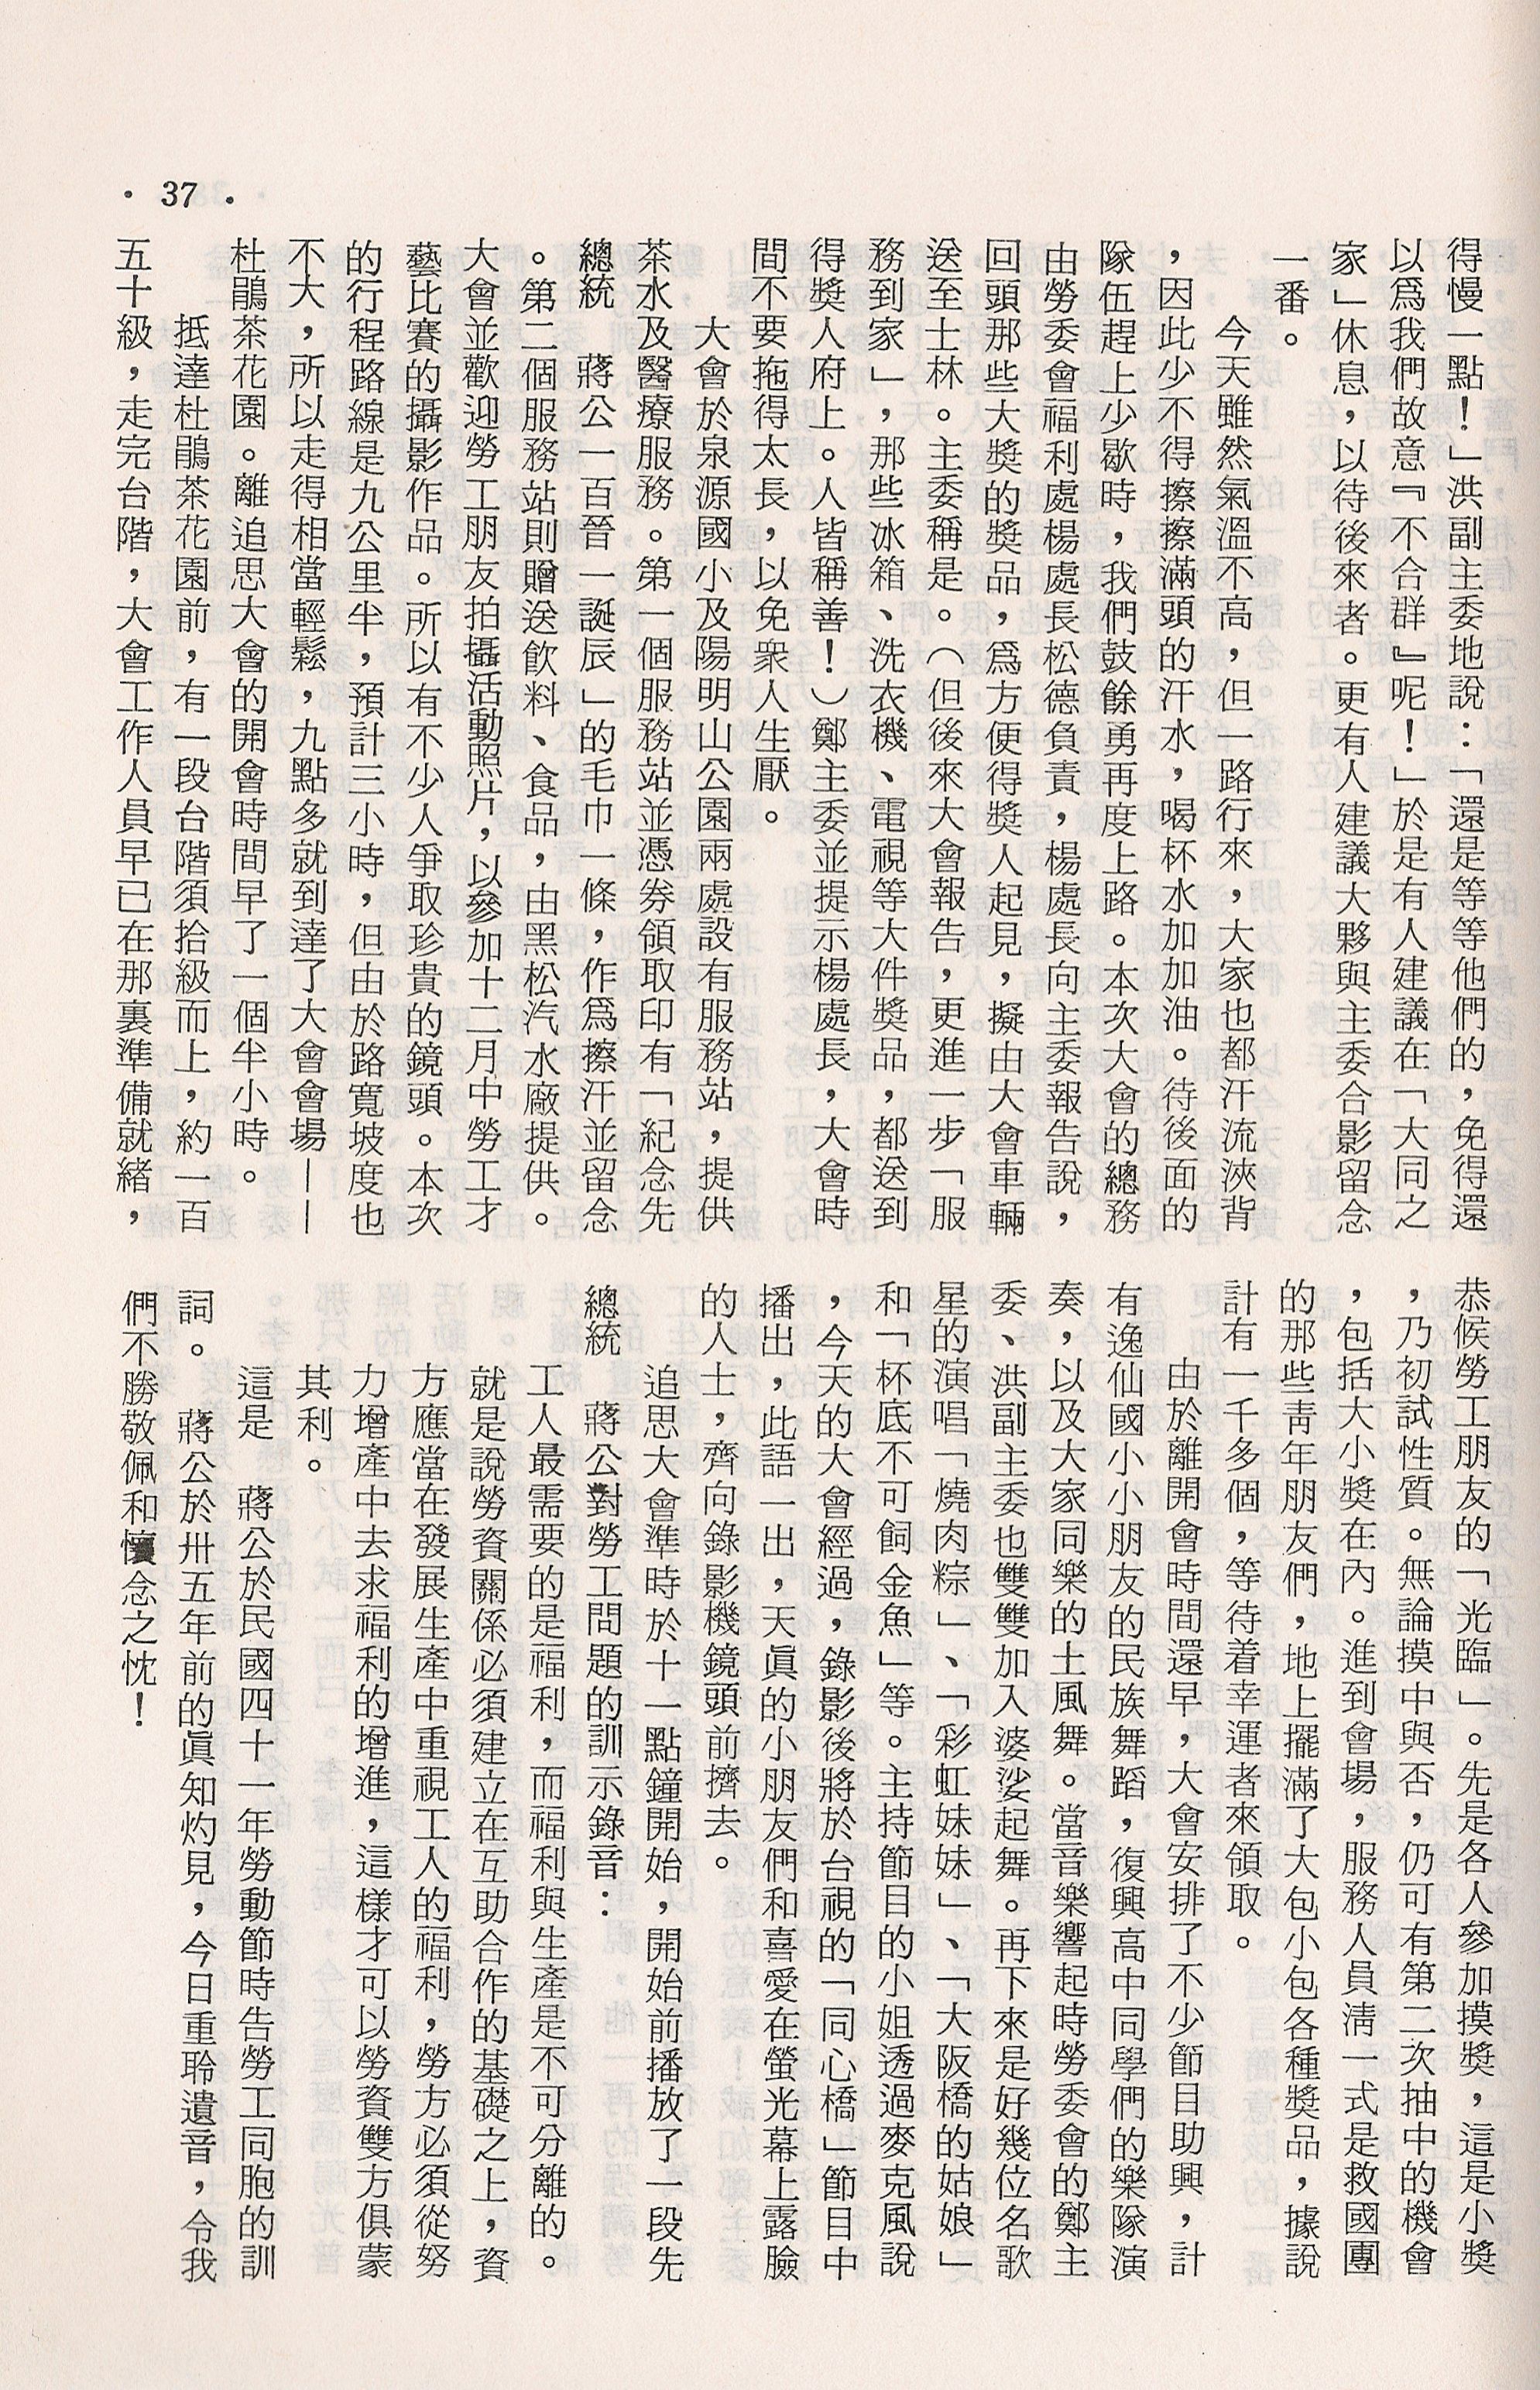 • 37 •
得慢一點！」洪副主委地說：「還是等等他們的，免得還
以爲我們故意『不合群』呢！」於是有人建議在「大同之
家」休息，以待後來者。更有人建議大夥與主委合影留念
一番。
今天雖然氣溫不高，但一路行來，大家也都汗流浹背
，因此少不得擦擦滿頭的汗水，喝杯水加加油。待後面的
隊伍趕上少歇時，我們鼓餘勇再度上路。本次大會的總務
由勞委會福利處楊處長松德負責，楊處長向主委報告說，
回頭那些大獎的獎品，爲方便得獎人起見，擬由大會車輛
送至士林。主委稱是。（但後來大會報告，更進一步「服
務到家」，那些冰箱、洗衣機、電視等大件獎品，都送到
得獎人府上。人皆稱善！）鄭主委並提示楊處長，大會時
間不要拖得太長，以免衆人生厭。
大會於泉源國小及陽明山公園兩處設有服務站，提供
茶水及醫療服務。第一個服務站並憑券領取印有「紀念先
總統　蔣公一百晉一誕辰」的毛巾一條，作爲擦汗並留念
。第二個服務站則贈送飲料、食品，由黑松汽水廠提供。
大會並歡迎勞工朋友拍攝活動照片，以參加十二月中勞工才
藝比賽的攝影作品。所以有不少人爭取珍貴的鏡頭。本次
的行程路線是九公里半，預計三小時，但由於路寬坡度也
不大，所以走得相當輕鬆，九點多就到達了大會會場——
杜鵑茶花園。離追思大會的開會時間早了一個半小時。
抵達杜鵑茶花園前，有一段台階須拾級而上，約一百
五十級，走完台階，大會工作人員早已在那裏準備就緒，
恭候勞工朋友的「光臨」。先是各人參加摸獎，這是小獎
，乃初試性質。無論摸中與否，仍可有第二次抽中的機會
，包括大小獎在內。進到會場，服務人員清一式是救國團
的那些青年朋友們，地上擺滿了大包小包各種獎品，據說
計有一千多個，等待着幸運者來領取。
由於離開會時間還早，大會安排了不少節目助興，計
有逸仙國小小朋友的民族舞蹈，復興高中同學們的樂隊演
奏，以及大家同樂的土風舞。當音樂響起時勞委會的鄭主
委、洪副主委也雙雙加入婆娑起舞。再下來是好幾位名歌
星的演唱「燒肉粽」、「彩虹妹妹」、「大阪橋的姑娘」
和「杯底不可飼金魚」等。主持節目的小姐透過麥克風說
，今天的大會經過，錄影後將於台視的「同心橋」節目中
播出，此語一出，天眞的小朋友們和喜愛在螢光幕上露臉
的人士，齊向錄影機鏡頭前擠去。
追思大會準時於十一點鐘開始，開始前播放了一段先
總統　蔣公對勞工問題的訓示錄音：
工人最需要的是福利，而福利與生產是不可分離的。
就是說勞資關係必須建立在互助合作的基礎之上，資
方應當在發展生產中重視工人的福利，勞方必須從努
力增產中去求福利的增進，這樣才可以勞資雙方俱蒙
其利。
這是　蔣公於民國四十一年勞動節時告勞工同胞的訓
詞。　蔣公於卅五年前的眞知灼見，今日重聆遺音，令我
們不勝敬佩和懷念之忱！